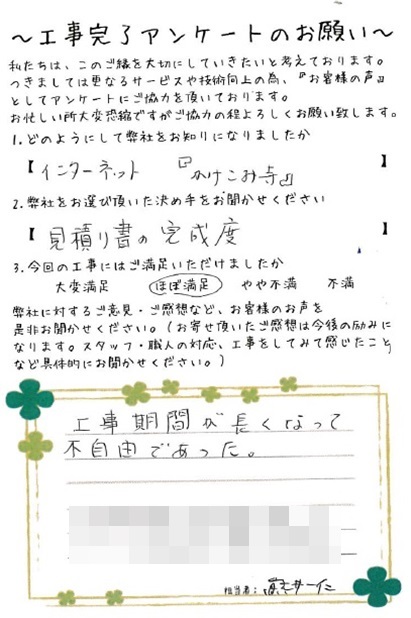 〜工事完了アンケートのお願い〜
私たちは、このご縁を大切にしていきたいと考えております。
つきましては更なるサービスや技術向上の為、『お客様の声』
としてアンケートにご協力を頂いております。
お忙しい所大変恐縮ですがご協力の程よろしくお願い致します。
1.どのようにして弊社をお知りになりましたか
【インターネット 『かけこみ寺』】
2.弊社をお選び頂いた決め手をお聞かせください
【見積り書の完成度】
3.今回の工事にはご満足いただけましたか
大変満足 ほぼ満足 やや不満 不満
弊社に対するご意見・ご感想など、お客様のお声を
是非お聞かせください。(お寄せ頂いたご感想は今後の励みに
なります。スタッフ・職人の対応、工事をしてみて感じたこと
など具体的にお聞かせください。)
工事期間が長くなって
不自由であった。
担当者: